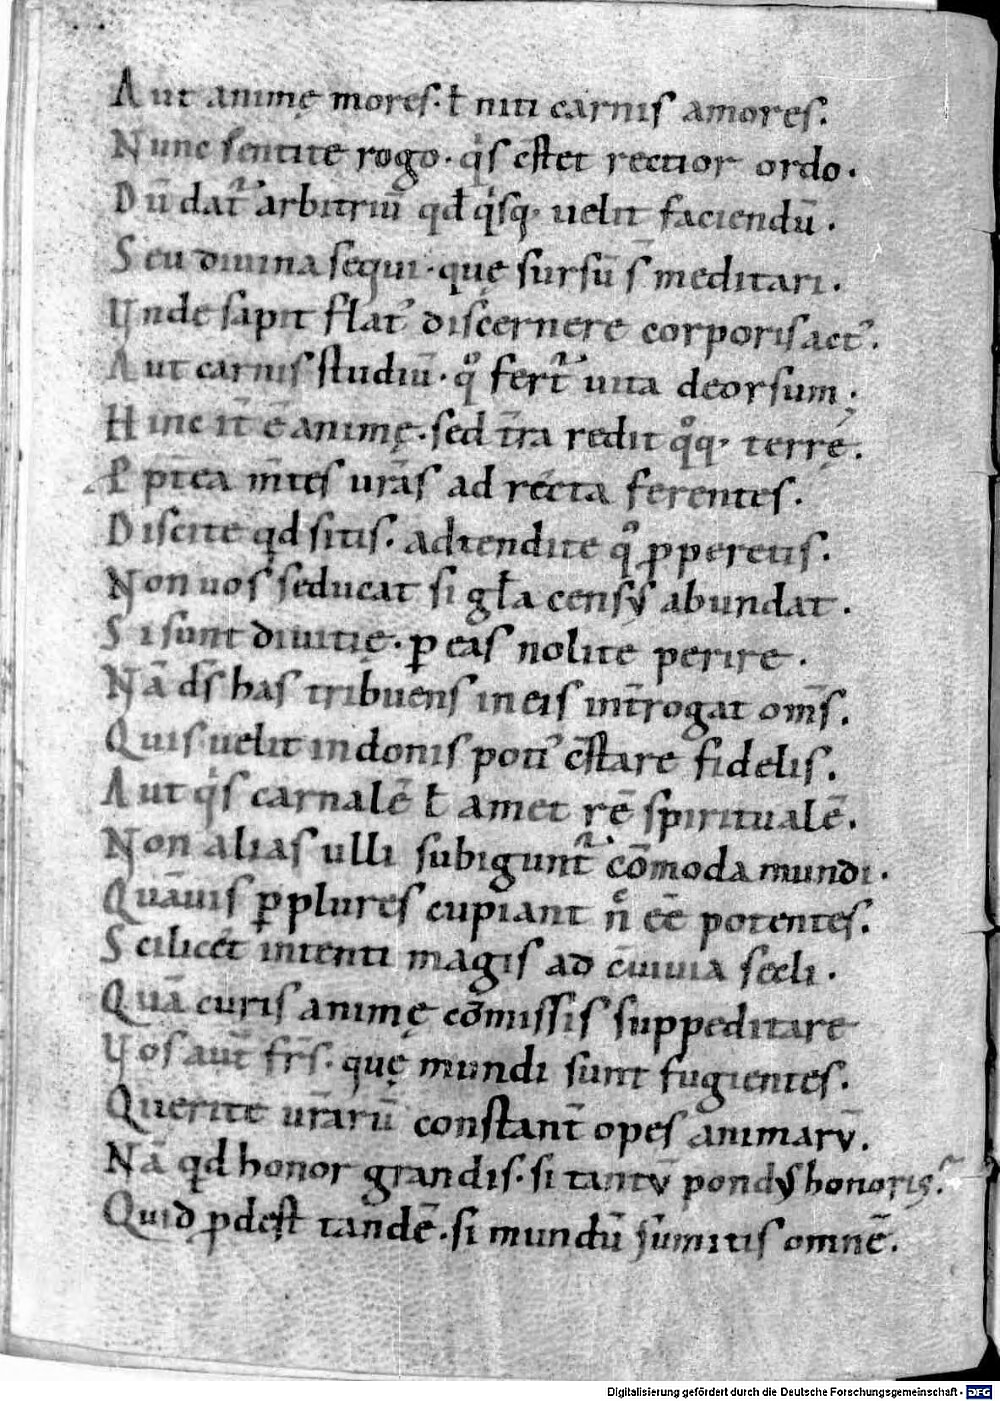 Aut animę mores. ł niti carnis amores.
Nunc sentite rogo. qͥs c̄stet rectior ordo.
Dū dat᷑ arbitriū qđ qͥsq; uelit faciendū.
Seu diuina sequi. quę sursū s̄ meditari.
Unde sapit flatꝰ discernere corporis actꝰ.
Aut carnis studiū. qͦ fert᷑ uita deorsum;
Hinc it̄ ē animę. sed t̄ra redit qͦq; terrę.
P̄pt̄ea m̄tes ur̄as ad recta ferentes.
Discite qđ sitis. adtendite qͦ ꝓperetis.
Non uos seducat si gła censꝰ abundat.
Si sunt diuitię. ꝑ eas nolite perire.
Nā d̄s has tribuens in eis int̄rogat om̄s.
Quis uelit in donis potiꝰ c̄stare fidelis.
Aut qͥs carnalē ł amet rē spiritualē.
Non alias ulli subigunt᷑ cōmoda mundi.
Quāuis ꝑplures cupiant n̄ ēē potentes.
Scilicet intenti magis ad c̄uiuia secli.
Quā curis animę cōmissis suppeditare
Uos aut̄ fr̄s. quę mundi sunt fugientes.
Querite ur̄arū constant̄ opes animarū.
Nā qđ honor grandis. si tantū pondꝰ honoris.
Quid ꝓdest tandē. si mundū sumitis omnē.
Digitalisierung gefördert durch die Deutsche Forschungsgemeinschaft - DFG